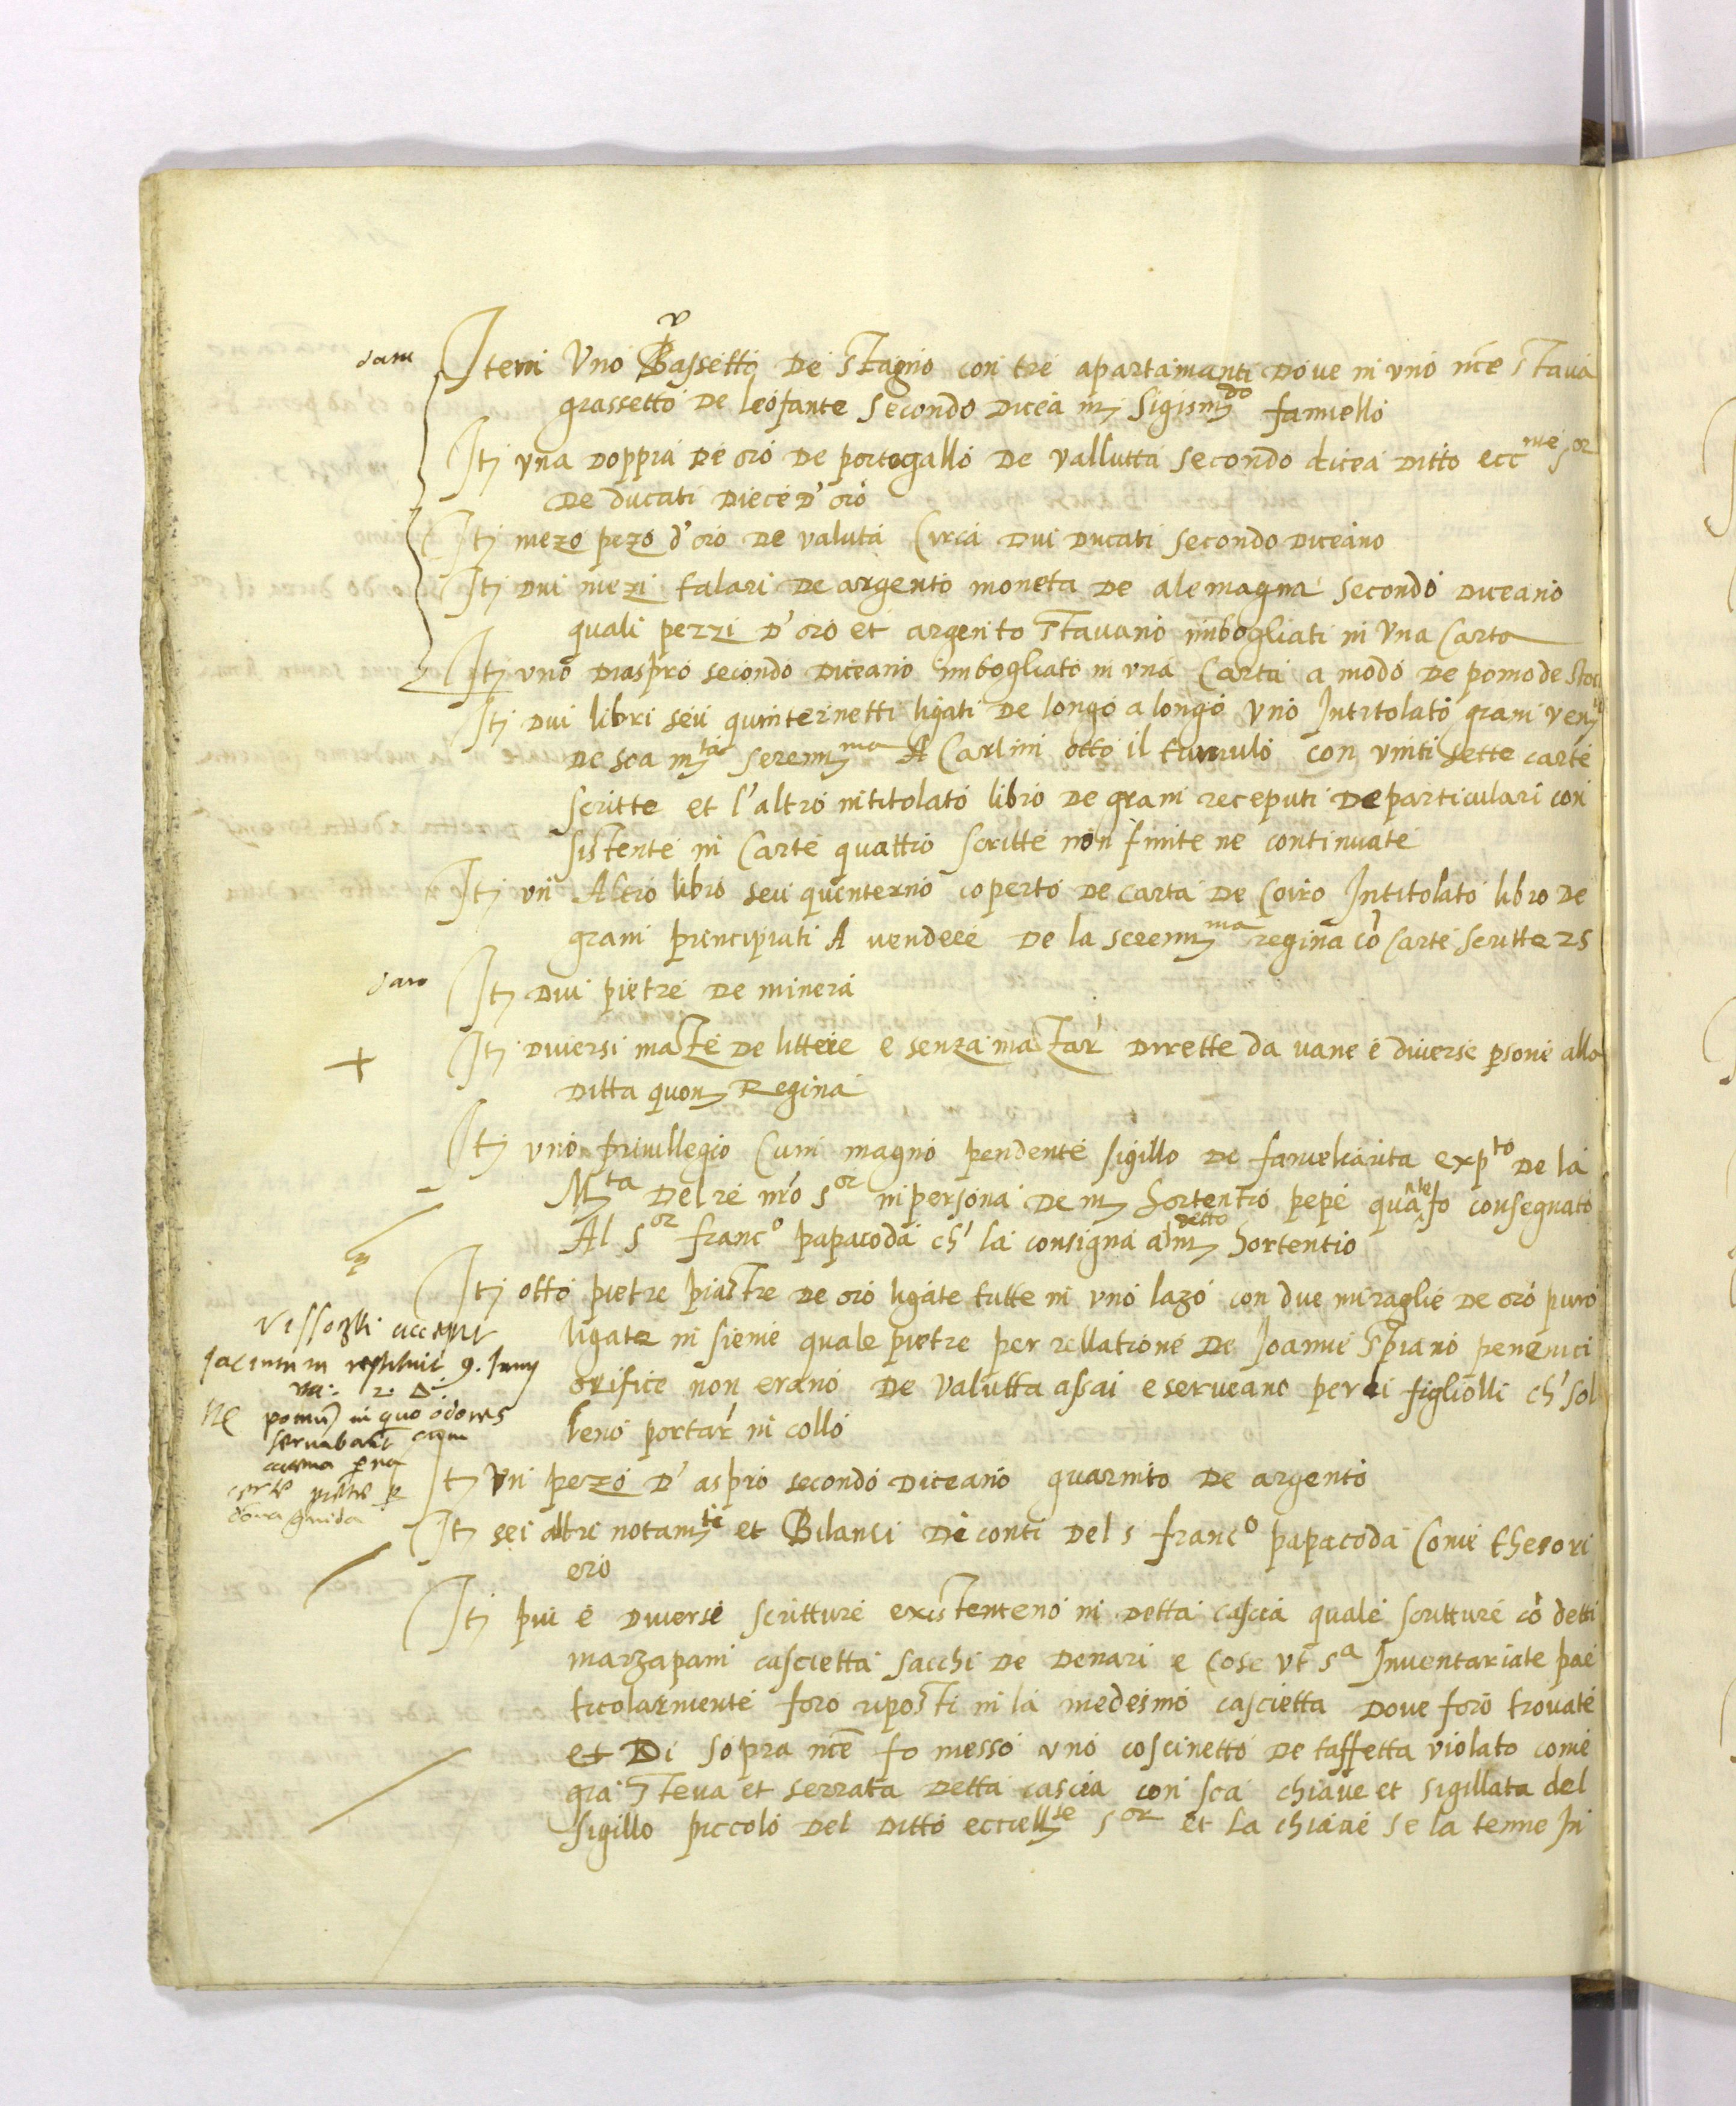 dani
Item Uno Vassetto de stagno con tre apartamanti dove in uno nce stava
grassetto de leofante secondo dicea mͬ Sigismͩᵒ fanuello
Itӡ una doppia de oro de portogallo de vallutta secondo dicea ditto eccᵐᵉ sᵒʳ
de ducati diece d'oro
Itӡ mezo pezo d'oro de valuta Circa dui ducati secondo diceano
Itӡ dui mezi talari de argento moneta de alemagna secondo diceano
quali pezzi d'oro et argento stavano imbogliati in una Carta
Itӡ uno diaspro secondo diceano imbogliato in una Carta a modo de pomo de
Itӡ dui libri seu quinternetti ligati de longo a longo uno Intitolato grani
de soa mᵗᵃ serenmᵐᵃ A Carlini otto il tumulo con vinti sette carte
scritte et l'altro intitolato libro de grani receputi de particulari con
sistente in Carte quattro scritte non finite ne continuate
Itӡ un Altro libro seu quinterno coperto de carta de Coiro Intitolato libro de
grani principiati A vendere de la serenmᵐᵃ regina cō Carte scritte 25
Itӡ dui pietre de minera
Itӡ diversi mazze de littere e senza mazzar' dirette da varie e diverse psone alla
ditta quonӡ Regina
Itӡ uno privillegio Cum magno pendente sigillo de fameliarita expᵗᵒ de la
Mᵗᵃ del re nrō sᵒʳ in persona de mͬ hortentio pepe quāⁿᵗᵉ fo consegnato
Al sᵒʳ francᵒ papacoda ch' la consigna a detto mͬ hortentio
Itӡ otto pietre piastre de oro ligate tutte in uno lazo con due miraglie de oro puro
ligate in sieme quale pietre per rellatione de Joanne
orifice non erano de valutta assai e serveano per li figliolli ch' sol
leno portar' in collo
Itӡ un pezo d'aspro secondo diceano guarnito de argento
Itӡ sei altri notamᵗⁱ et Bilanci de conti del s francᵒ papacoda Come thesori
ero
Itӡ piu e diverse scritture existenteno in detta cascia quale scritture cō detti
marzapani cascietta sacchi de denari e Cose ut sᵃ Inventariate par
ticolarmente foro riposti in la medesmo cascietta dove foro trovate
et Di sopra nce fo messo uno coscinetto de taffetta violato come
gia steva et serrata detta cascia con sca chiave et sigillata del
sigillo piccolo del ditto eccellᵗᵉ sᵒʳ et la chiave se la tenne In
restituit 9. Junij
pomū in quo odores
servabant cum